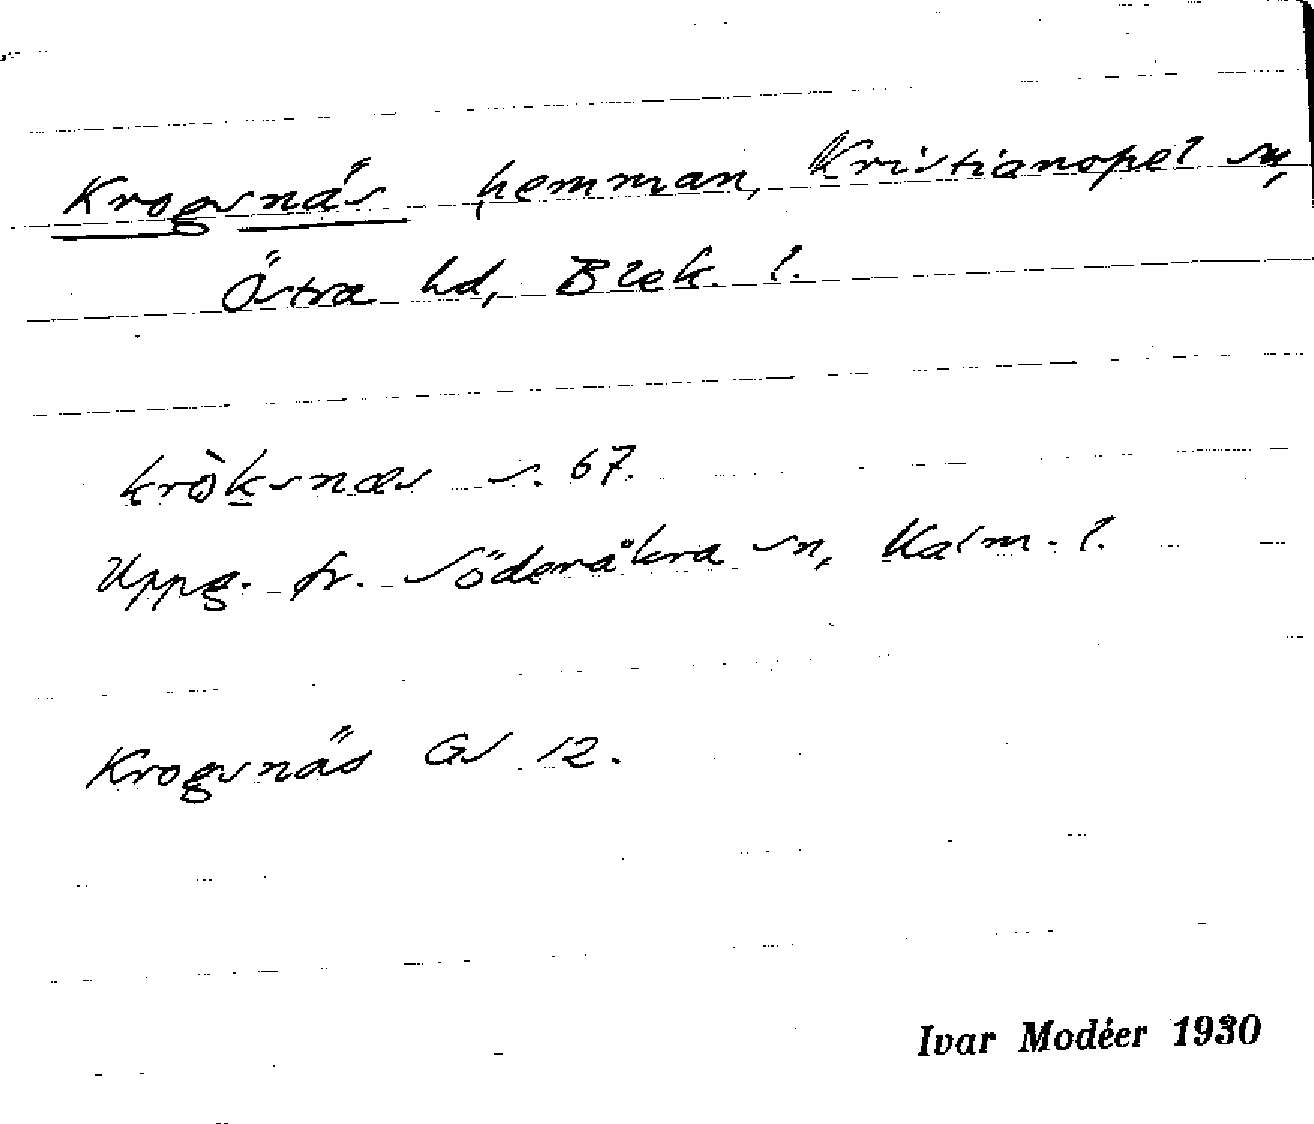 Krogsnäs hemman, Kristianopel sn,
Östra hd, Blek. l.
kròksnæs s. 67.
Uppg. fr. Söderåkra sn, Kalm. l.
Krogsnäs GS 12.
Ivar Modéer 1930